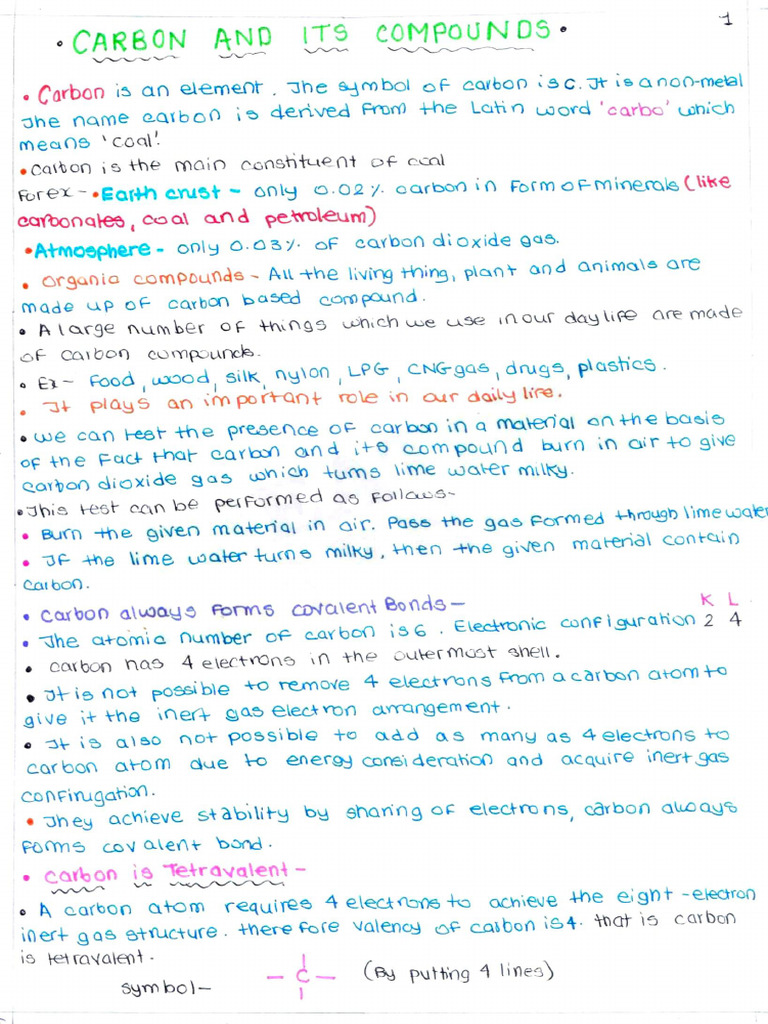 1
• CARBON AND ITS COMPOUNDS •
• Carbon is an element. The symbol of carbon is C. It is a non-metal
The name carbon is derived from the Latin word 'carbo' which
means 'coal'.
• Carbon is the main constituent of coal
For ex - • Earth crust - only 0.02% carbon in form of minerals (like
carbonates, coal and petroleum)
• Atmosphere - only 0.03% of carbon dioxide gas.
• Organic compounds - All the living thing, plant and animals are
made up of carbon based compound.
• A large number of things which we use in our day life are made
of carbon compounds.
• Ex - Food, wood, silk, nylon, LPG, CNG gas, drugs, plastics.
• It plays an important role in our daily life.
• we can test the presence of carbon in a material on the basis
of the fact that carbon and its compound burn in air to give
carbon dioxide gas which turns lime water milky.
• This test can be performed as follows-
• Burn the given material in air. Pass the gas formed through lime water
• If the lime water turns milky, then the given material contain
carbon.
• Carbon always forms covalent Bonds -
K L
• The atomic number of carbon is 6. Electronic configuration 2 4
• carbon has 4 electrons in the outermost shell.
• It is not possible to remove 4 electrons from a carbon atom to
give it the inert gas electron arrangement.
• It is also not possible to add as many as 4 electrons to
carbon atom due to energy consideration and acquire inert gas
confirugation.
• They achieve stability by sharing of electrons, carbon always
forms covalent bond.
• Carbon is Tetravalent -
• A carbon atom requires 4 electrons to achieve the eight - electron
inert gas structure. therefore valency of carbon is 4. that is carbon
is tetravalent.
symbol - C (By putting 4 lines)